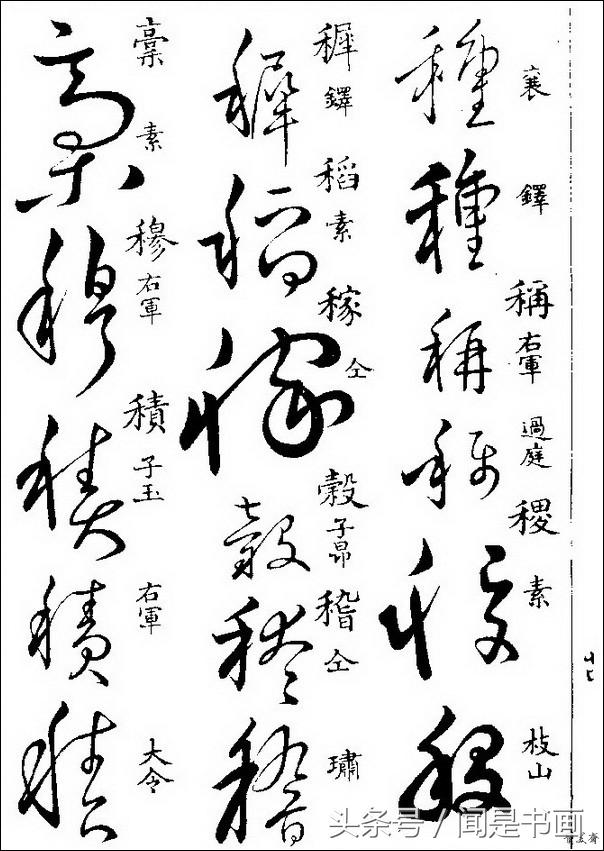 種 襄
種 鐸
稱 右軍
稱 過庭
稷 素
稷 枝山
稺 鐸
稻 素
稼 仝
穀 子昂
稽 仝
稽 璛
稾 素
穆 右軍
積 子玉
積 右軍
積 大令
廿七
头条号 / 闻是书画